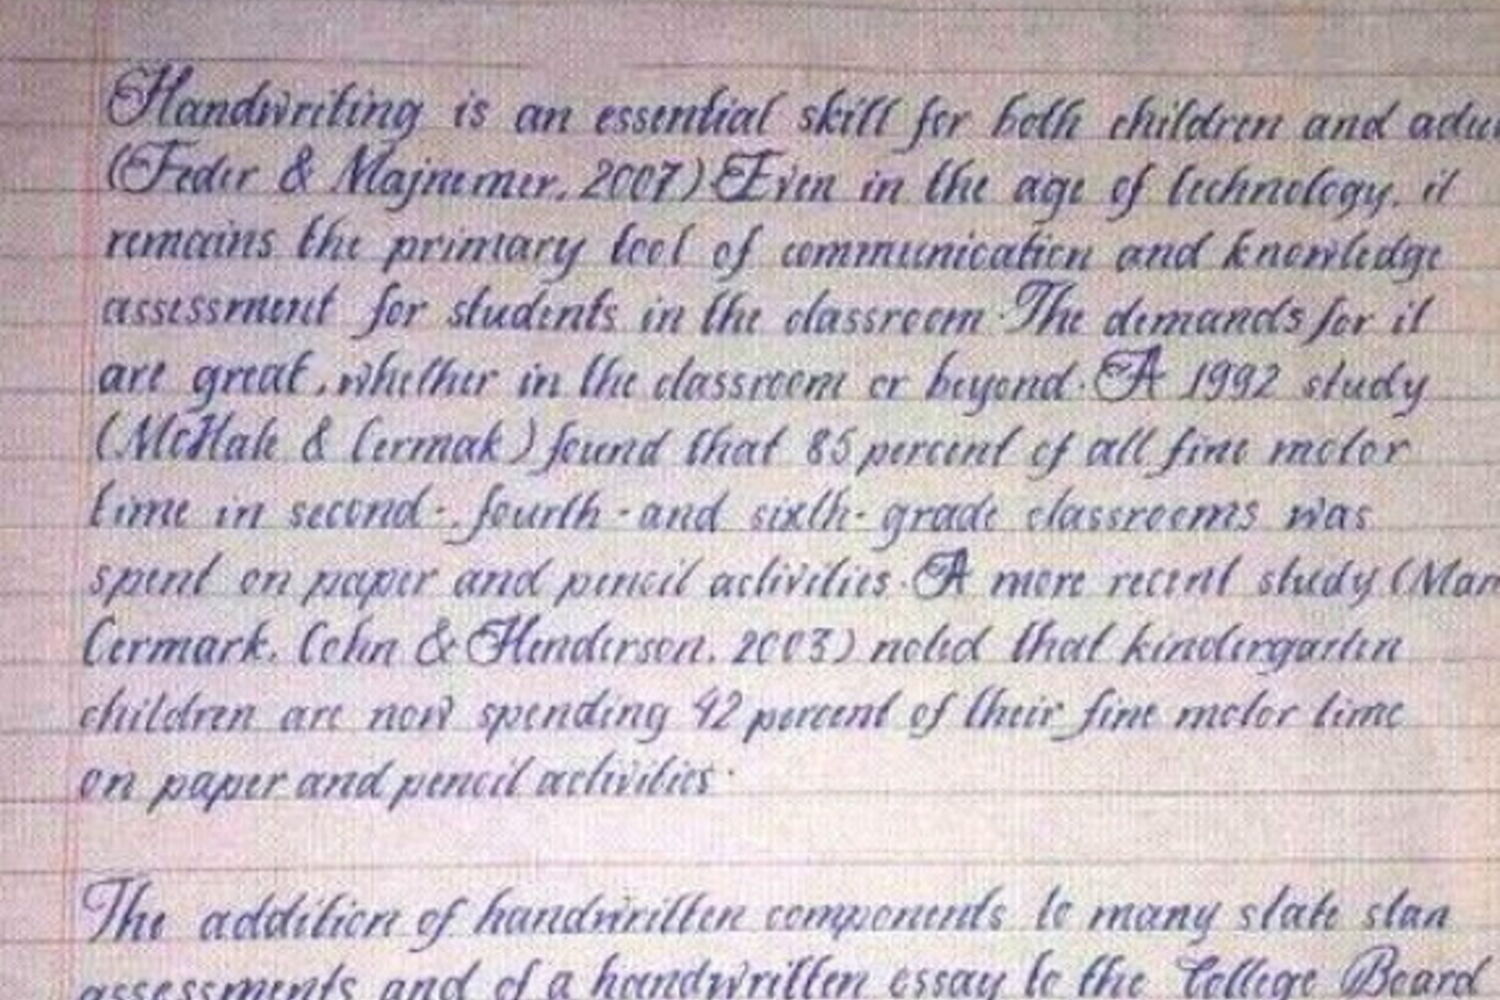 Handwriting is an essential skill for both children and adu
(Feder & Majnemer, 2007). Even in the age of technology, it
remains the primary tool of communication and knowledge
assessment for students in the classroom. The demands for it
are great, whether in the classroom or beyond. A 1992 study
(McHale & Cermak) found that 85 percent of all fine motor
time in second-, fourth-and sixth-grade classrooms was
spent on paper and pencil activities. A more recent study (Mar
Cermark, Cohn & Henderson, 2003) noted that kindergarten
children are now spending 42 percent of their fine motor time
on paper and pencil activities.
The addition of handwritten components to many state stan
assessments and of a handwritten essay to the College Board